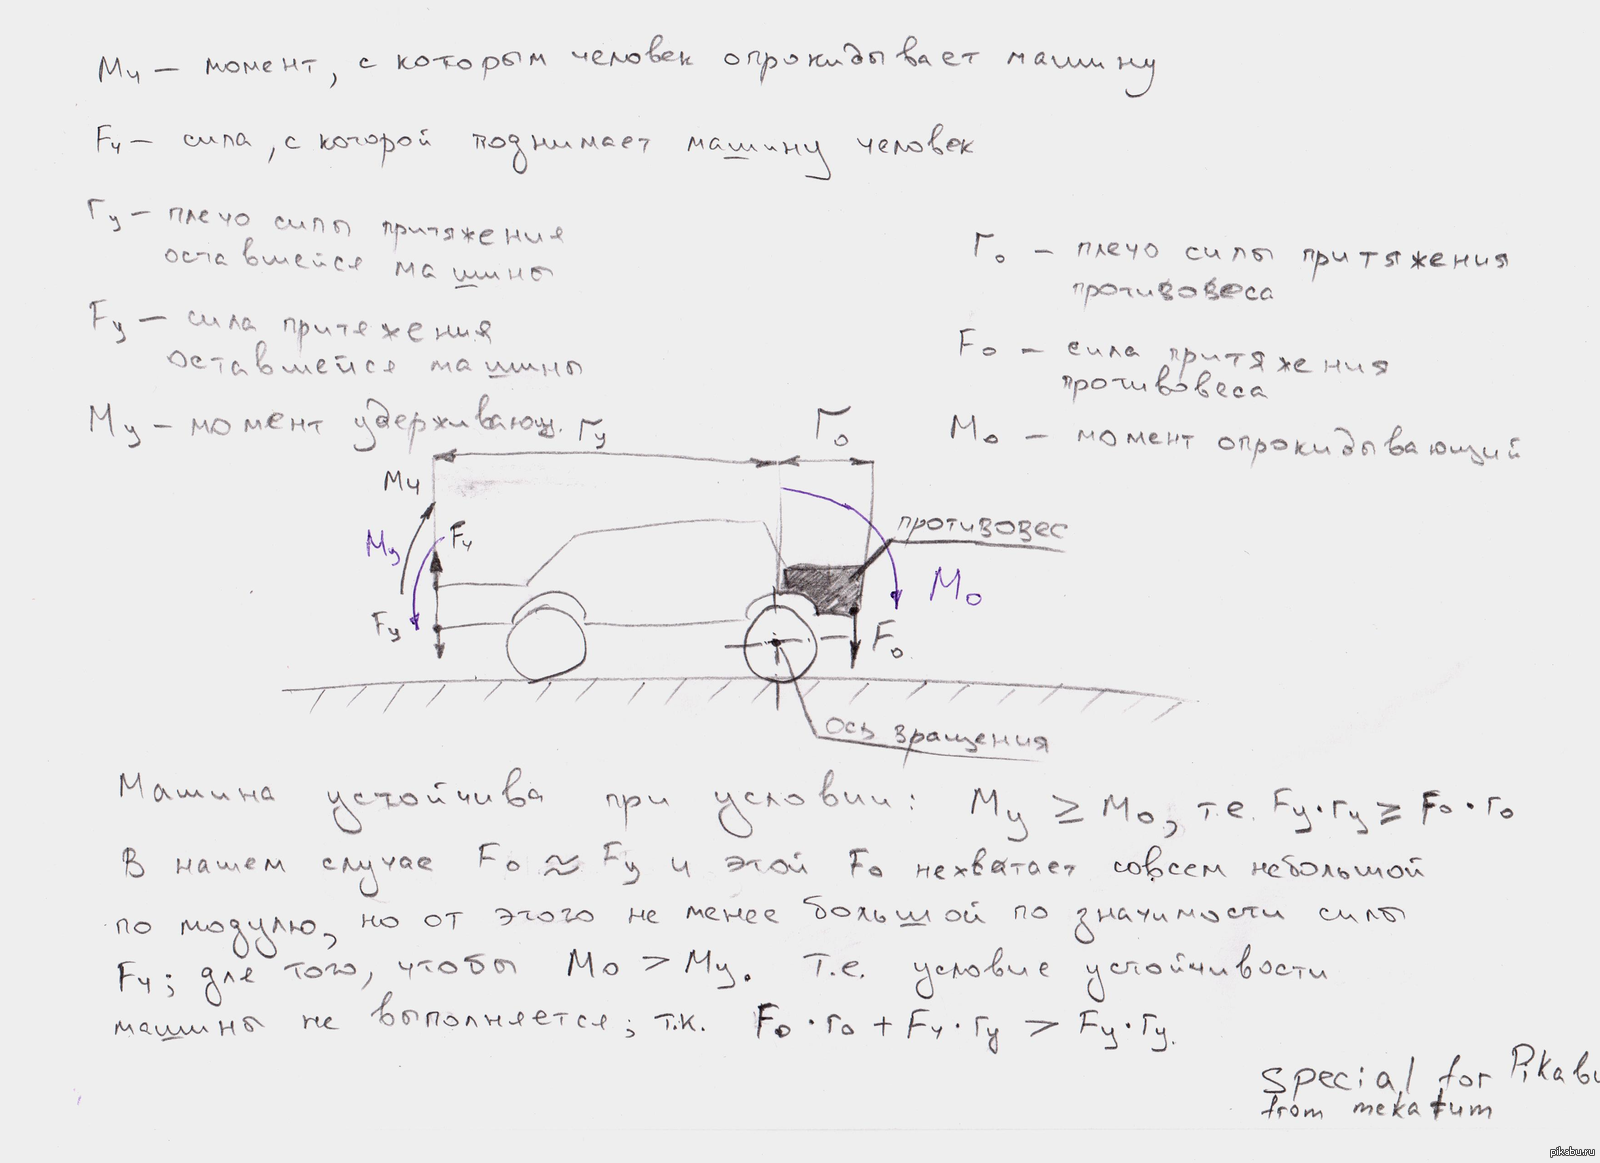 Мч — момент, с которым человек опрокидывает машину
Fч — сила, с которой поднимает машину человек
rу — плечо силы притяжения
оставшейся машины
Fу — сила притяжения
оставшейся машины
Му — момент удерживающ.
rо — плечо силы притяжения
противовеса
Fо — сила притяжения
противовеса
Мо — момент опрокидывающий
rу
rо
Мч
Му
Fч
Fу
противовес
Мо
Fо
ось вращения
Машина устойчива при условии: Му ≥ Мо, т.е. Fу·rу ≥ Fо·rо
В нашем случае Fо ≈ Fу и этой Fо нехватает совсем небольшой
по модулю, но от этого не менее большой по значимости силы
Fч; для того, чтобы Мо > Му. Т.е. условие устойчивости
машины не выполняется; т.к. Fо·rо + Fч·rу > Fу·rу.
Special for Pikabu
from mekatum
pikabu.ru